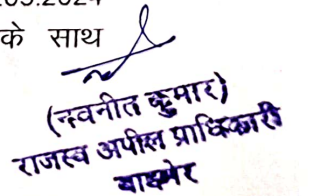 .05.2024
के साथ
(नवनीत कुमार)
राजस्व अपील प्राधिकारी
बाड़मेर